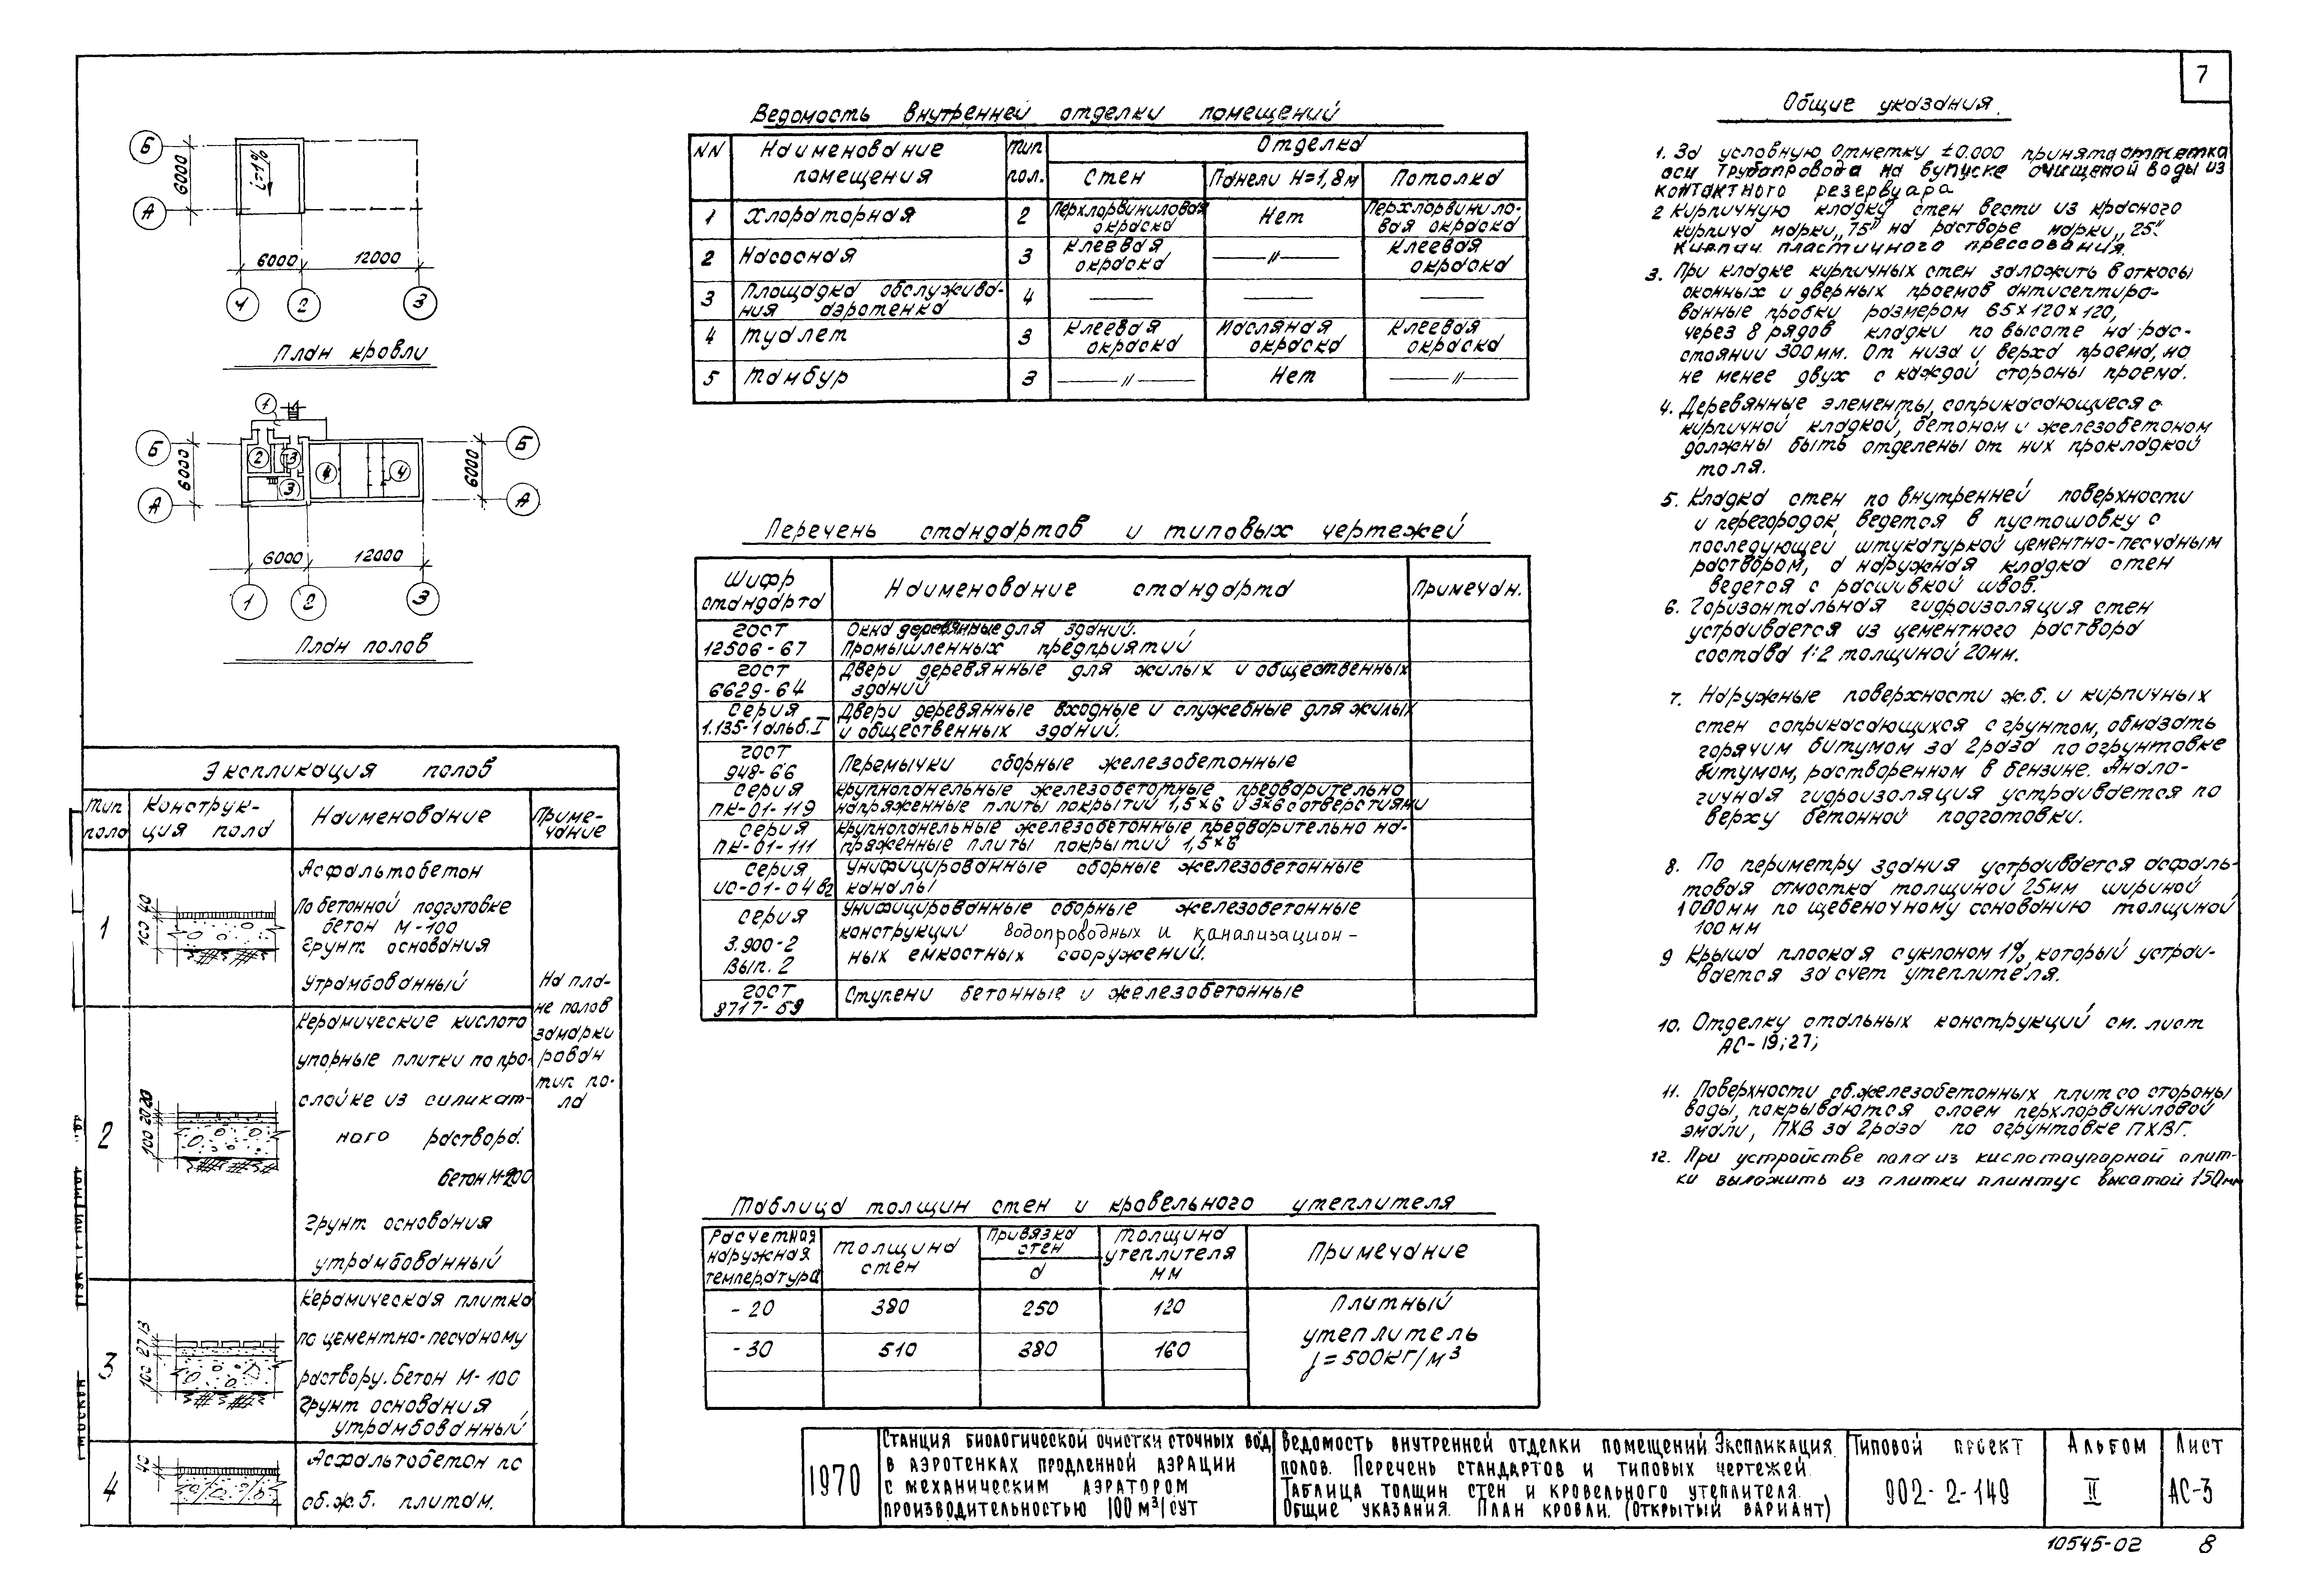 7
Б
А
6000
i=1%
6000
12000
1
2
3
План кровли
1
Б
А
6000
2
3
3
4
4
6000
Б
А
6000
12000
1
2
3
План полов
Экспликация полов
Тип
пола
Конструк-
ция пола
Наименование
Приме-
чание
1
100 40
Асфальтобетон
по бетонной подготовке
бетон М-100
грунт основания
утрамбованный
2
100 20 20
Керамические кислото
упорные плитки по про-
слойке из силикат-
ного раствора.
бетон М-200
грунт основания
утрамбованный
3
100 27 13
Керамическая плитка
по цементно-песчаному
раствору. бетон М-100
грунт основания
утрамбованный
4
40
Асфальтобетон по
сб.ж.б. плитам.
На пла-
не полов
замарки
рован
тип по-
ла
Ведомость внутренней отделки помещений
NN
Наименование
помещения
Тип
пол.
Отделка
Стен
Панели H=1,8м
Потолка
1 Хлораторная 2 Перхлорвиниловая окраска Нет Перхлорвинило-вая окраска
2 Насосная 3 Клеевая окраска —〃— Клеевая окраска
3 Площадка обслужива-ния аэротенка 4 — — —
4 Туалет 3 Клеевая окраска Масляная окраска Клеевая окраска
5 Тамбур 3 —〃— Нет —〃—
Перечень стандартов и типовых чертежей
Шифр
стандарта
Наименование стандарта
Примечан.
ГОСТ Окна деревянные для зданий.
12506-67 Промышленных предприятий
ГОСТ Двери деревянные для жилых и общественных
6629-64 зданий
серия Двери деревянные входные и служебные для жилых
1.135-1 альб.I и общественных зданий.
ГОСТ
948-66 Перемычки сборные железобетонные
серия Крупнопанельные железобетонные предварительно
ПК-01-119 напряженные плиты покрытий 1,5×6 и 3×6 с отверстиями
серия Крупнопанельные железобетонные предварительно на-
ПК-01-111 пряженные плиты покрытий 1,5×6
серия Унифицированные сборные железобетонные
ИС-01-04 в2 каналы
серия Унифицированные сборные железобетонные
3.900-2 конструкции водопроводных и канализацион-
Вып. 2 ных емкостных сооружений.
ГОСТ
8717-59 Ступени бетонные и железобетонные
Таблица толщин стен и кровельного утеплителя
Расчетная
наружная
температура
Толщина
стен
Привязка
стен
d
Толщина
утеплителя
мм
Примечание
-20 380 250 120
-30 510 380 160
Плитный
утеплитель
γ=500кг/м³
Общие указания.
1. За условную отметку ±0.000 принята отметка
оси трубопровода на выпуске очищеной воды из
контактного резервуара
2 Кирпичную кладку стен вести из красного
кирпича марки „75" на растворе марки „25".
Кирпич пластичного прессования.
3. При кладке кирпичных стен заложить в откосы
оконных и дверных проемов антисептиро-
ванные пробки размером 65×120×120,
через 8 рядов кладки по высоте на рас-
стоянии 300мм. От низа и верха проема, но
не менее двух с каждой стороны проема.
4. Деревянные элементы, соприкасающиеся с
кирпичной кладкой, бетоном и железобетоном
должны быть отделены от них прокладкой
толя.
5. Кладка стен по внутренней поверхности
и перегородок ведется в пустошовку с
последующей штукатуркой цементно-песчаным
раствором, а наружная кладка стен
ведется с расшивкой швов.
6. Горизонтальная гидроизоляция стен
устраивается из цементного раствора
состава 1:2 толщиной 20мм.
7. Наружные поверхности ж.б. и кирпичных
стен соприкасающихся с грунтом, обмазать
горячим битумом за 2 раза по огрунтовке
битумом, растворенном в бензине. Анало-
гичная гидроизоляция устраивается по
верху бетонной подготовки.
8. По периметру здания устраивается асфаль-
товая отмостка толщиной 25мм шириной
1000мм по щебеночному основанию толщиной
100мм
9 Крыша плоская с уклоном 1%, который устраи-
вается за счет утеплителя.
10. Отделку стальных конструкций см. лист
АС-19; 27;
11. Поверхности сб.железобетонных плит со стороны
воды, покрываются слоем перхлорвиниловой
эмали, ПХВ за 2 раза по огрунтовке ПХВГ.
12. При устройстве пола из кислотоупорной плит-
ки выложить из плитки плинтус высотой 150мм
1970
Станция биологической очистки сточных вод
в аэротенках продленной аэрации
с механическим аэратором
производительностью 100 м³/сут
Ведомость внутренней отделки помещений. Экспликация
полов. Перечень стандартов и типовых чертежей.
Таблица толщин стен и кровельного утеплителя.
Общие указания. План кровли. (Открытый вариант)
Типовой проект
902-2-149
Альбом
II
Лист
АС-3
10545-02 8